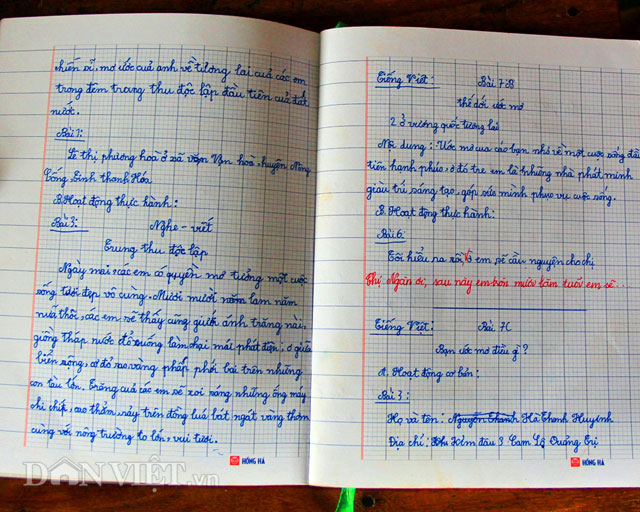 chiến sĩ, mơ ước của anh về tương lai của các em
trong đêm trung thu độc lập đầu tiên của đất
nước.
Bài 1:
Lê thị phương hoa ở xã Vạn hoà, huyện Nông
Cống, tỉnh thanh Hóa
B. Hoạt động thực hành:
Bài 3: Nghe - viết
Trung thu độc lập
Ngày mai, các em có quyền mơ tưởng một cuộc
sống tươi đẹp vô cùng. Mười mười năm lam năm
nữa thôi, các em sẽ thấy cũng giưới ánh trăng này,
giồng thác nước đổ xuống làm chạy mái phát điện; ở giữa
biển rộng, cơ đỏ sao vàng phấp phới bai trên những
con tàu lớn. Trăng của các em sẽ soi sáng những ống máy
chi chít, cao thẳm, rảy trên đồng luá bát ngát vàng thơm
cung với nông trường to lớn, vui tươi.
HỒNG HÀ
Tiếng Việt: Bài 7B
thế dới ước mơ
2. ở vương quốc tương lai
Nội dung: Ước mơ của các bạn nhỏ về một cuộc sống đầ
tiên hạnh phúc, ở đó trẻ em là những nhà phát minh
giàu trí sáng tạo, góp sức mình phục vụ cuộc sống.
B. Hoạt động thực hành:
Bài 6:
Tôi hiểu ra rồi, em sẽ cầu nguyện cho chị
Chị Ngàn ơi, sau này em mười lăm tuổi em sẽ...
Tiếng Việt: Bài 7C
Bạn ước mơ điều gì?
A. Hoạt động cơ bản:
Bài 3:
Họ và tên: Nguyễn Thành Hà Thanh Huyình
Địa chỉ: Khu Klm đâu 3 Cam Lộ Quảng Trị
HỒNG HÀ
DÂN VIỆT.vn